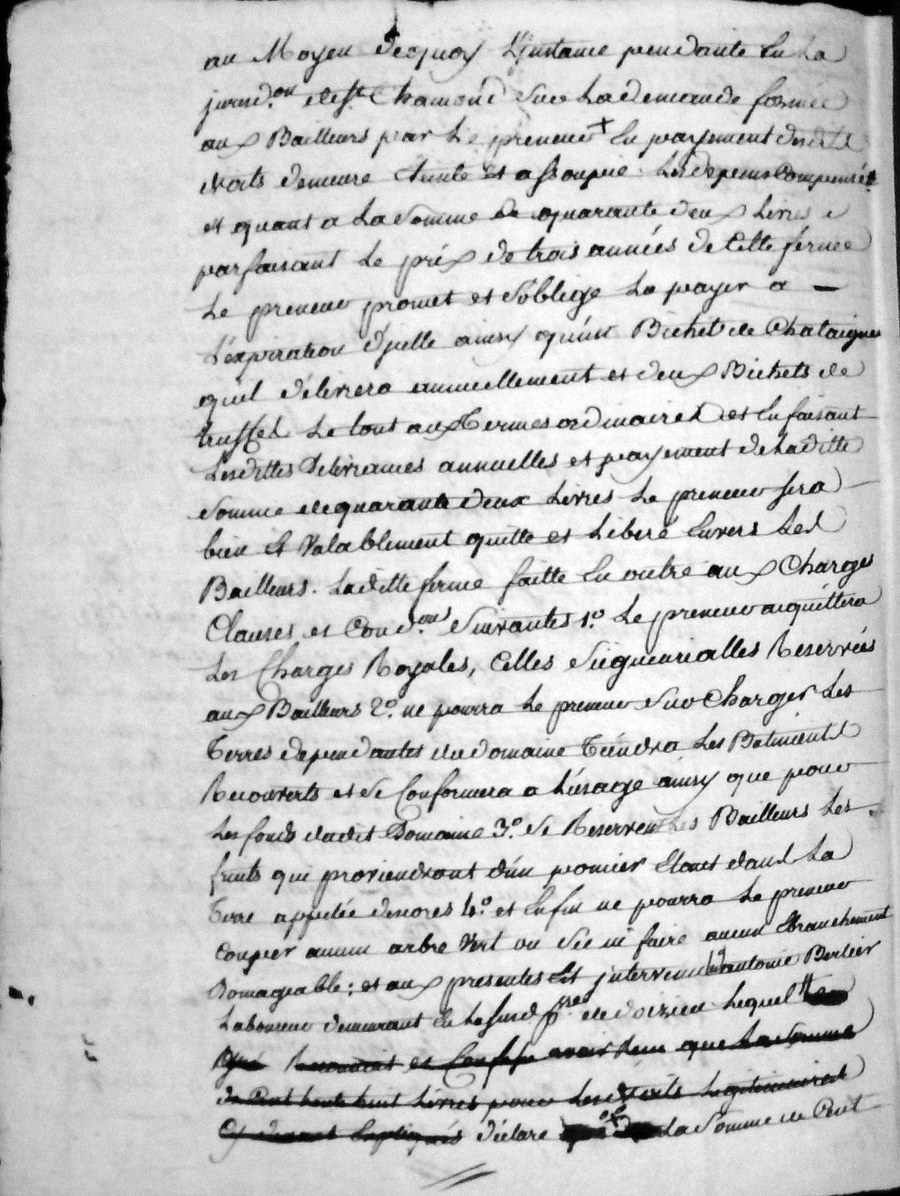 au Moyen dequoy L'instance pendante En La
jurisd.on de st Chamond Sur La demande formée
aux Bailleurs par Le preneur + En payement desdits
droits demeure Eteinte et assoupie. Les depens Compensés
et quant a La Somme de quarante deux Livres
parfaisant Le préx de trois années de Cette ferme
Le preneur promet et S'oblige La payer a —
L'expiration d'jcelle ainsy qu'un Bichet de Chataignes
quil délivrera annuellement et deux Bichets de
truffes Le tout aux Termes ordinaires et En faisant
Lesdittes Délivrances annuelles et payement de Laditte
Somme de quarante deux Livres Le preneur sera
bien Et Valablement quitte et Libéré Envers Les
Bailleurs. Laditte ferme faitte En outre aux Charges
Clauses et Cond.ons Suivantes 1.o Le preneur acquittera
Les Charges Royales, Celles Siegneurialles Reservées
aux Bailleurs 2.o ne pourra Le preneur Sur Charger Les
Terres dependantes du domaine Tiendra Les Batiments
Recouverts et Se Conformera a L'usage ainsy que pour
Les fonds dudit Domaine 3.o Se Reservent Les Bailleurs Les
fruits qui proviendront d'un pomier Etant dans La
Terre appellée 4.o et Enfin ne pourra Le preneur
Couper aucun arbre Vert ou Sec ni faire aucun Ebranchement
Domageable: et aux presentes Est intervenu antoine Berlier
Laboureur demeurant En Lad. p.sse de doizieu Lequel
Reconnoit et Confesse avoir Recu que La Somme
de Cent trente huit Livres pour Les droits Legitimaires
Cy devant Expliqués déclare La Somme de Cent